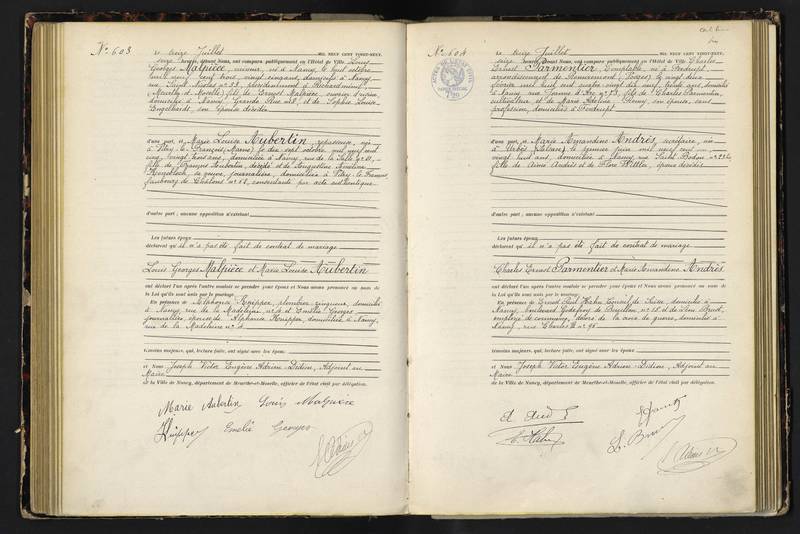 N° 603
Le treize Juillet MIL NEUF CENT VINGT-NEUF,
seize heures, devant Nous, ont comparu publiquement en l'Hôtel de Ville Louis
Georges Malpièce, mineur, né à Nancy le huit octobre
mil neuf cent trois, vingt cinq ans, domicilié à Nancy
rue Saint Nicolas n° 39, précédemment à Richardménil
(Meurthe et Moselle) fils de Ernest Malpièce, ouvrier d'usine
domicilié à Nancy, Grande Rue et de Sophie Louise
Engelhardt, son épouse décédée
d'une part, et Marie Louise Aubertin, repasseuse, née
à Vitry le François (Marne) le dix sept octobre mil neuf cent
cinq, vingt trois ans, domiciliée à Nancy, rue de la Salle n° 10,
fille de François Aubertin, décédé et de
sa veuve, journalière, domiciliée à Vitry le François
faubourg de Châlons n° 68, consentante par acte authentique.
d'autre part ; aucune opposition n'existant
Les futurs époux
déclarent qu'il n'a pas été fait de contrat de mariage
Louis Georges Malpièce et Marie Louise Aubertin
ont déclaré l'un après l'autre vouloir se prendre pour époux et Nous avons prononcé au nom de
la Loi qu'ils sont unis par le mariage
En présence de Alphonse Knipper, plombier zingueur, domicilié
à Nancy, rue de la Madeleine n° 4 et Emélie Georges
journalière, épouse de Alphonse Knipper, domiciliée à Nancy,
rue de la Madeleine n° 4
témoins majeurs, qui, lecture faite, ont signé avec les époux
et Nous Joseph Victor Eugène Adrien Didion, Adjoint au
Maire
de la Ville de Nancy, département de Meurthe-et-Moselle, officier de l'état civil par délégation.
Marie Aubertin Louis Malpièce
Knipper Emelie Georges
N° 604
Le treize Juillet MIL NEUF CENT VINGT-NEUF,
seize heures, devant Nous, ont comparu publiquement en l'Hôtel de Ville Charles
Ernest Parmentier, Comptable, né à
arrondissement de Remiremont (Vosges) le vingt deux
février mil huit cent quatre vingt dix neuf, trente ans, domicilié
à Nancy, rue Jeanne d'Arc n° 53, fils de Charles Parmentier,
cultivateur et de Marie Adeline Remy, son épouse, sans
profession, domiciliés à
d'une part, et Marie Amandine Andrès, née
à Urbès (Alsace) le premier juin mil neuf cent un
vingt huit ans, domiciliée à Nancy, rue Saint Bodon
fille de Aimé Andrès et de Flore Wittler, époux décédés
d'autre part ; aucune opposition n'existant
Les futurs époux
déclarent qu'il n'a pas été fait de contrat de mariage
Charles Ernest Parmentier et Marie Amandine Andrès
ont déclaré l'un après l'autre vouloir se prendre pour époux et Nous avons prononcé au nom de
la Loi qu'ils sont unis par le mariage
En présence de Ernest Paul Hahn Consul de Suisse, domicilié à
Nancy, boulevard Godefroy de Bouillon n° 15 et de Léon
employé de commerce, décoré de la croix de guerre, domicilié à
Nancy, rue Charles III n° 95
témoins majeurs, qui, lecture faite, ont signé avec les époux
et Nous Joseph Victor Eugène Adrien Didion, Adjoint au
Maire
de la Ville de Nancy, département de Meurthe-et-Moselle, officier de l'état civil par délégation.